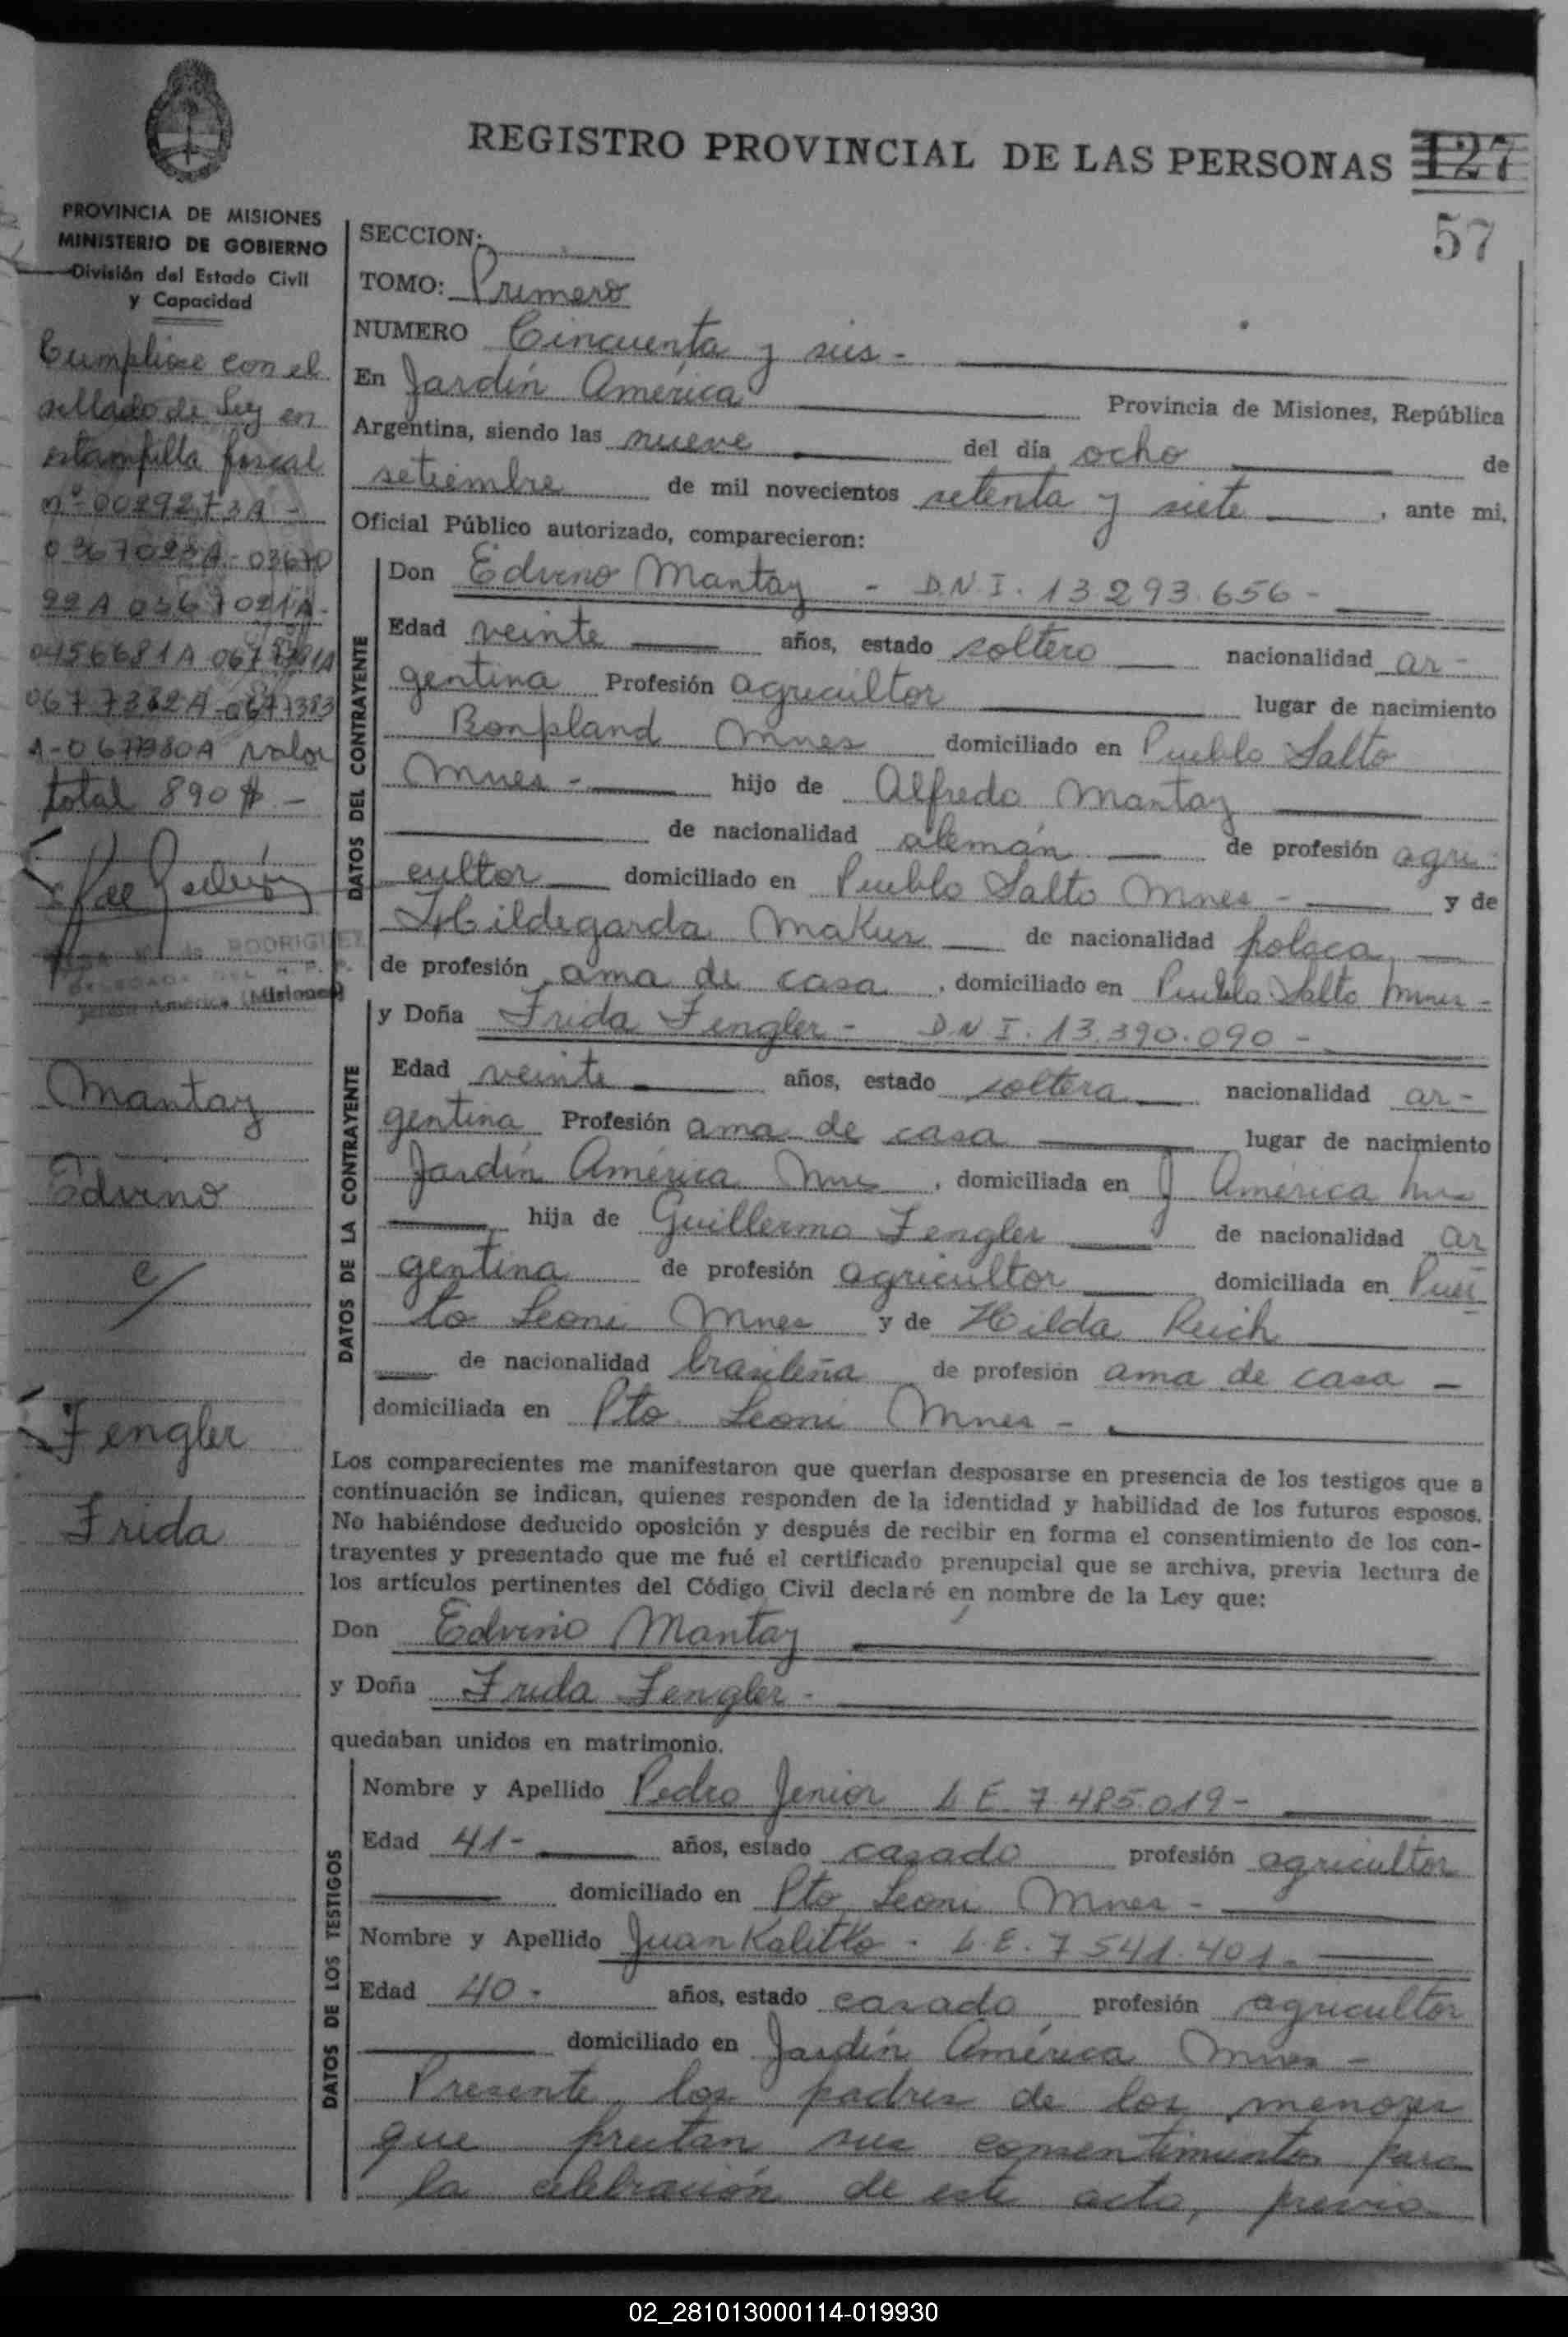 REGISTRO PROVINCIAL DE LAS PERSONAS 127
57
PROVINCIA DE MISIONES
MINISTERIO DE GOBIERNO
División del Estado Civil
y Capacidad
Cumplise con el
sellado de Ley en
estampilla fiscal
nº 0029273A -
0367023A - 03670
22A 0367021A -
0456681A
valor
total 890 $ -
RODRIGUEZ
América (Misiones)
Mantay
Edvino
c/
Fengler
Frida
SECCION:
TOMO: Primero
NUMERO Cincuenta y seis -
En Jardín América Provincia de Misiones, República
Argentina, siendo las nueve del día ocho de
setiembre de mil novecientos setenta y siete, ante mi,
Oficial Público autorizado, comparecieron:
DATOS DEL CONTRAYENTE
Don Edvino Mantay - D.N.I. 13.293.656 -
Edad veinte años, estado soltero nacionalidad ar-
gentina Profesión agricultor lugar de nacimiento
Bonpland Mnes domiciliado en Pueblo Salto
Mnes - hijo de Alfredo Mantay
de nacionalidad alemán de profesión agri
cultor domiciliado en Pueblo Salto Mnes - y de
Hildegarda Makus de nacionalidad polaca
de profesión ama de casa, domiciliado en Pueblo Salto Mnes -
DATOS DE LA CONTRAYENTE
y Doña Frida Fengler - D.N.I. 13.390.090 -
Edad veinte años, estado soltera nacionalidad ar-
gentina Profesión ama de casa lugar de nacimiento
Jardín América Mnes, domiciliada en J América Mnes
hija de Guillermo Fengler de nacionalidad ar
gentina de profesión agricultor domiciliada en Puer
to Leoni Mnes y de Hilda Reich
de nacionalidad brasileña de profesión ama de casa -
domiciliada en Pto. Leoni Mnes -
Los comparecientes me manifestaron que querían desposarse en presencia de los testigos que a
continuación se indican, quienes responden de la identidad y habilidad de los futuros esposos.
No habiéndose deducido oposición y después de recibir en forma el consentimiento de los con-
trayentes y presentado que me fué el certificado prenupcial que se archiva, previa lectura de
los artículos pertinentes del Código Civil declaré en nombre de la Ley que:
Don Edvino Mantay
y Doña Frida Fengler -
quedaban unidos en matrimonio.
DATOS DE LOS TESTIGOS
Nombre y Apellido Pedro Jenior L E. 7.485.019 -
Edad 41 - años, estado casado profesión agricultor
domiciliado en Pto Leoni Mnes -
Nombre y Apellido Juan Kalitko - L.E. 7.541.401 -
Edad 40 - años, estado casado profesión agricultor
domiciliado en Jardín América Mnes -
Presente los padres de los menores
que prestan sus consentimientos para
la celebración de este acto, previa
02_281013000114-019930